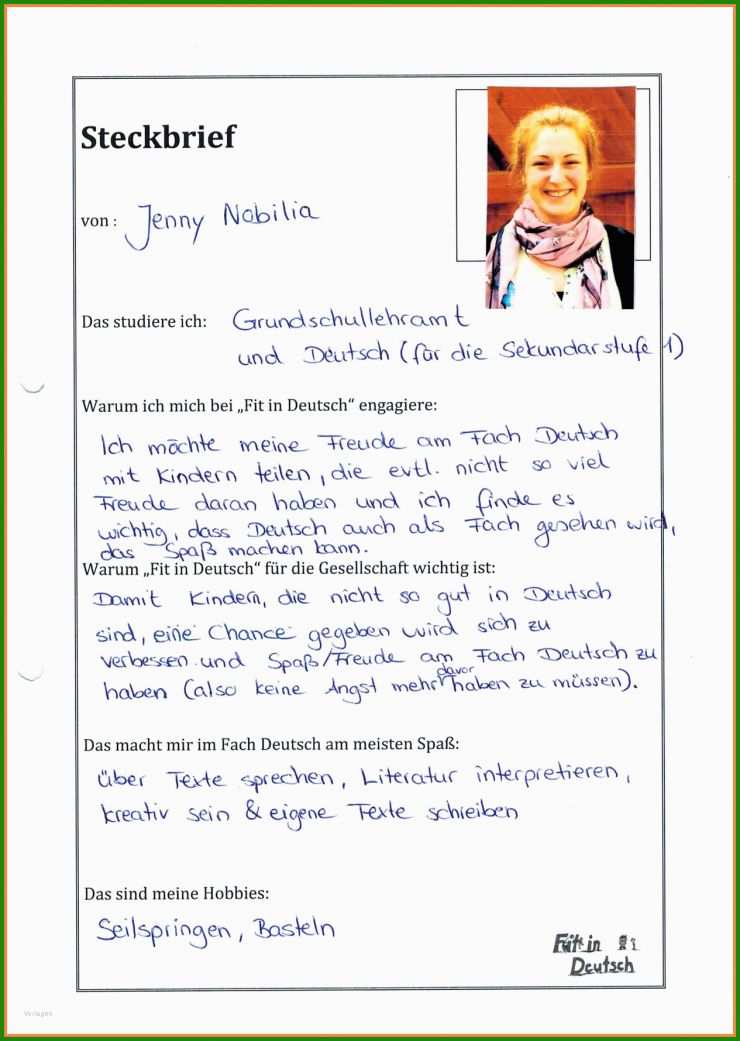 Steckbrief
von : Jenny Nobilia
Das studiere ich: Grundschullehramt
und Deutsch (für die Sekundarstufe 1)
Warum ich mich bei „Fit in Deutsch“ engagiere:
Ich möchte meine Freude am Fach Deutsch
mit Kindern teilen, die evtl. nicht so viel
Freude daran haben und ich finde es
wichtig, dass Deutsch auch als Fach gesehen wird,
das Spaß machen kann.
Warum „Fit in Deutsch“ für die Gesellschaft wichtig ist:
Damit Kindern, die nicht so gut in Deutsch
sind, eine Chance gegeben wird sich zu
verbessen und Spaß/Freude am Fach Deutsch zu
haben (also keine Angst mehr davor haben zu müssen).
Das macht mir im Fach Deutsch am meisten Spaß:
über Texte sprechen, Literatur interpretieren,
kreativ sein & eigene Texte schreiben
Das sind meine Hobbies:
Seilspringen, Basteln
Fit in
Deutsch
Vorlagen